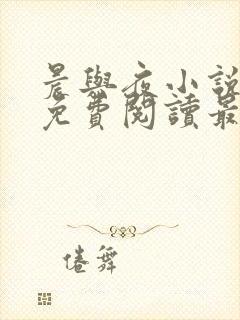 晨與夜小說
免費閱讀最
倦舞